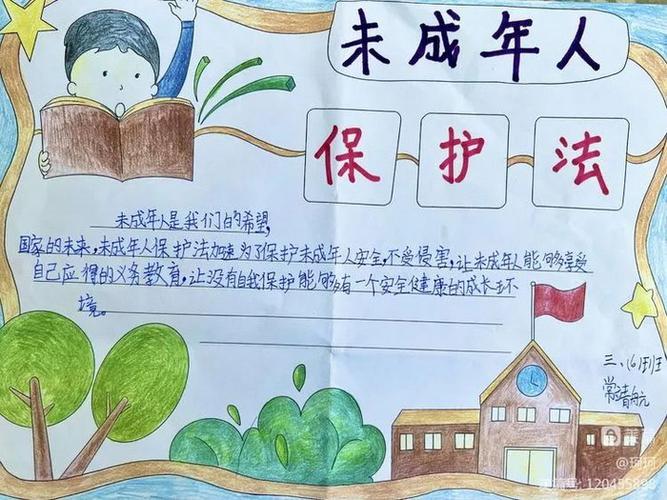 未成年人
保护法
未成年人是我们的希望,
国家的未来,未成年人保护法加速为了保护未成年人安全,不受侵害,让未成年人能够享受
自己应得的义务教育,让没有自我保护能够有一个安全健康的成长环
境。
三、(6)班班
常清航
@珂珂